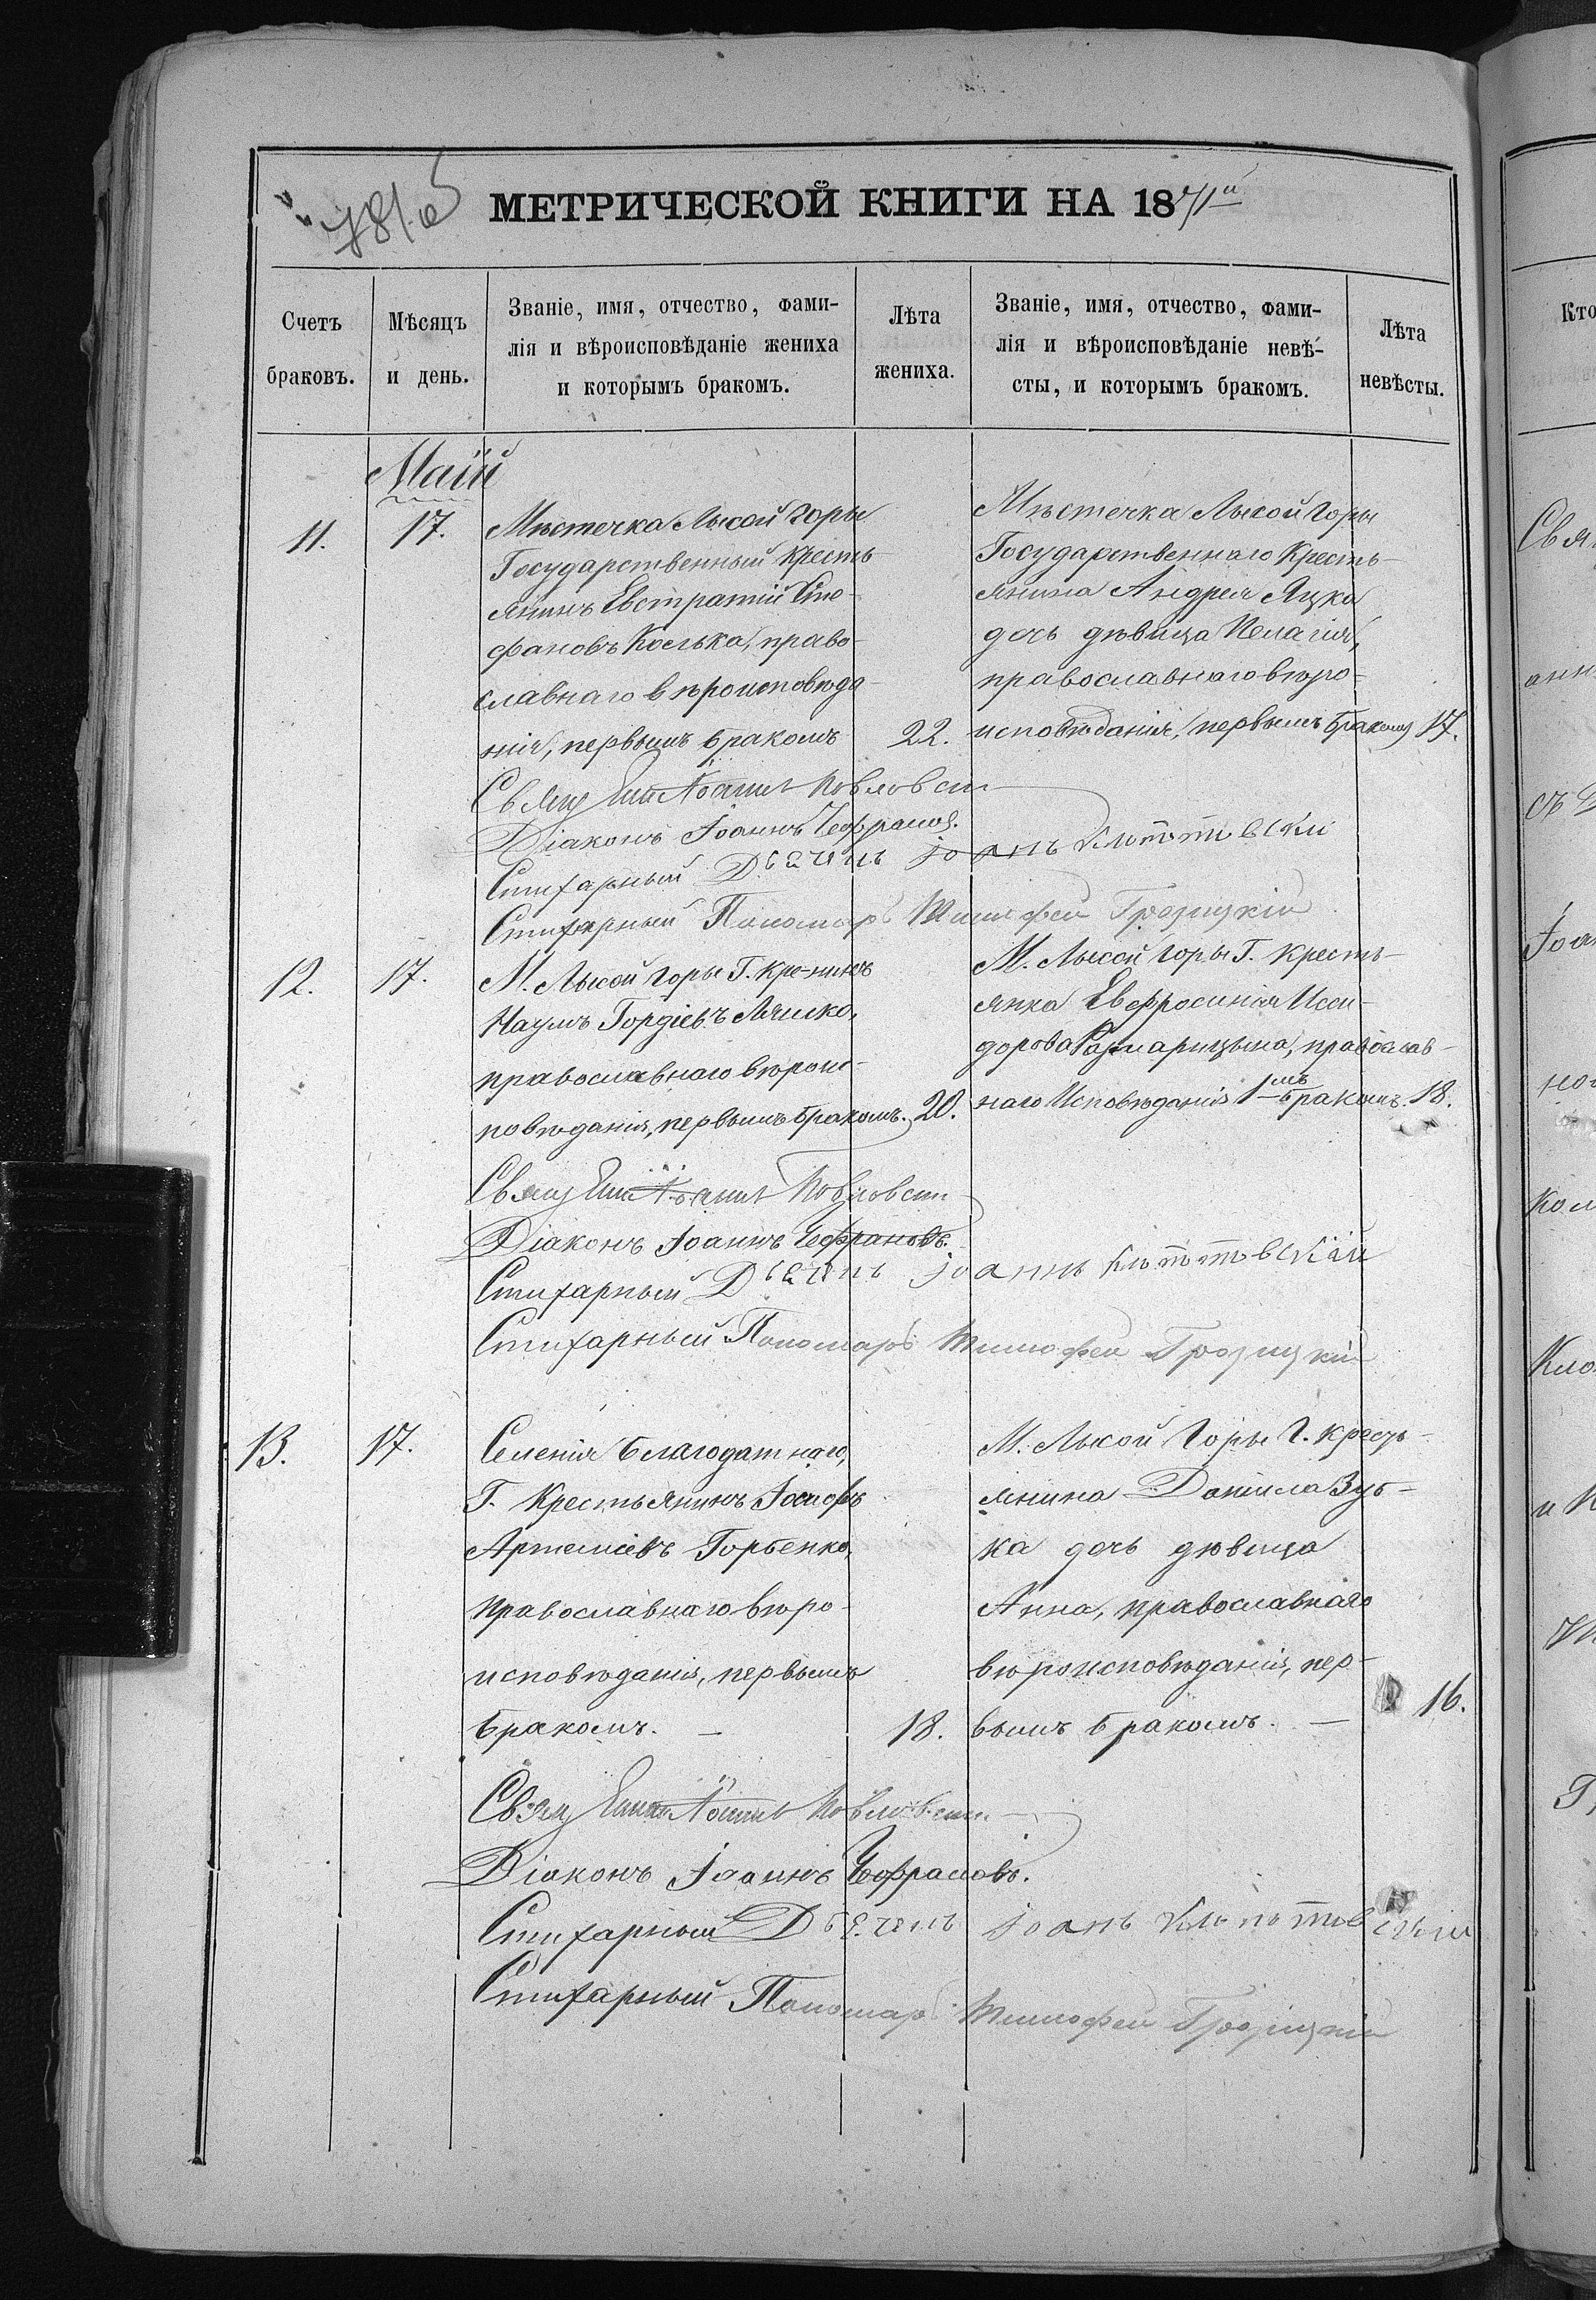 781об
МЕТРИЧЕСКОЙ КНИГИ НА 1871й
Счетъ браковъ.
Мѣсяцъ и день.
Званіе, имя, отчество, фами-
лія и вѣроисповѣданіе жениха
и которымъ бракомъ.
Лѣта жениха.
Званіе, имя, отчество, фами-
лія и вѣроисповѣданіе невѣ-
сты, и которымъ бракомъ.
Лѣта невѣсты.
Маій
11. 17.
Мѣстечка Лысой Горы
Государственный Кресть
янинъ Евстратій Сте-
фановъ Коська, право-
славнаго вѣроисповѣда-
нія, первымъ бракомъ 22.
Мѣстечка Лысой Горы
Государственнаго Кресть-
янина Андрея Яцка
дочь дѣвица Пелагія,
православнаго вѣро-
исповѣданія, первымъ бракомъ 17.
Іоаннъ
Діаконъ Іоаннъ Чефрановъ.
Стихарный Дьячекъ Іоанъ
Стихарный Пономарь Тимофей Грозицкій
12. 17.
М. Лысой Горы Г. Кре-нинъ
Наумъ Гордіевъ Ляшко,
православнаго вѣроис-
повѣданія, первымъ бракомъ. 20.
М. Лысой Горы Г. Кресть-
янка Евфросинія Иси-
дорова православ-
наго Исповѣданія 1мъ бракомъ. 18.
Іоаннъ
Діаконъ Іоаннъ Чефрановъ.
Стихарный Дьячекъ Іоаннъ
Стихарный Пономарь Тимофей Грозицкій
13. 17.
Селенія Благодатнаго,
Г. Крестьянинъ Іосифъ
Артеміевъ Горбенко,
Православнаго вѣро-
исповѣданія, первымъ
бракомъ. — 18.
М. Лысой Горы Г. Кресть-
янина Даніила Зуб-
ка дочь дѣвица
Анна, православнаго
вѣроисповѣданія, пер-
вымъ бракомъ. — 16.
Іоаннъ
Діаконъ Іоаннъ Чефрановъ.
Стихарный Дьячекъ Іоанъ
Стихарный Пономарь Тимофей Грозицкій
Кто